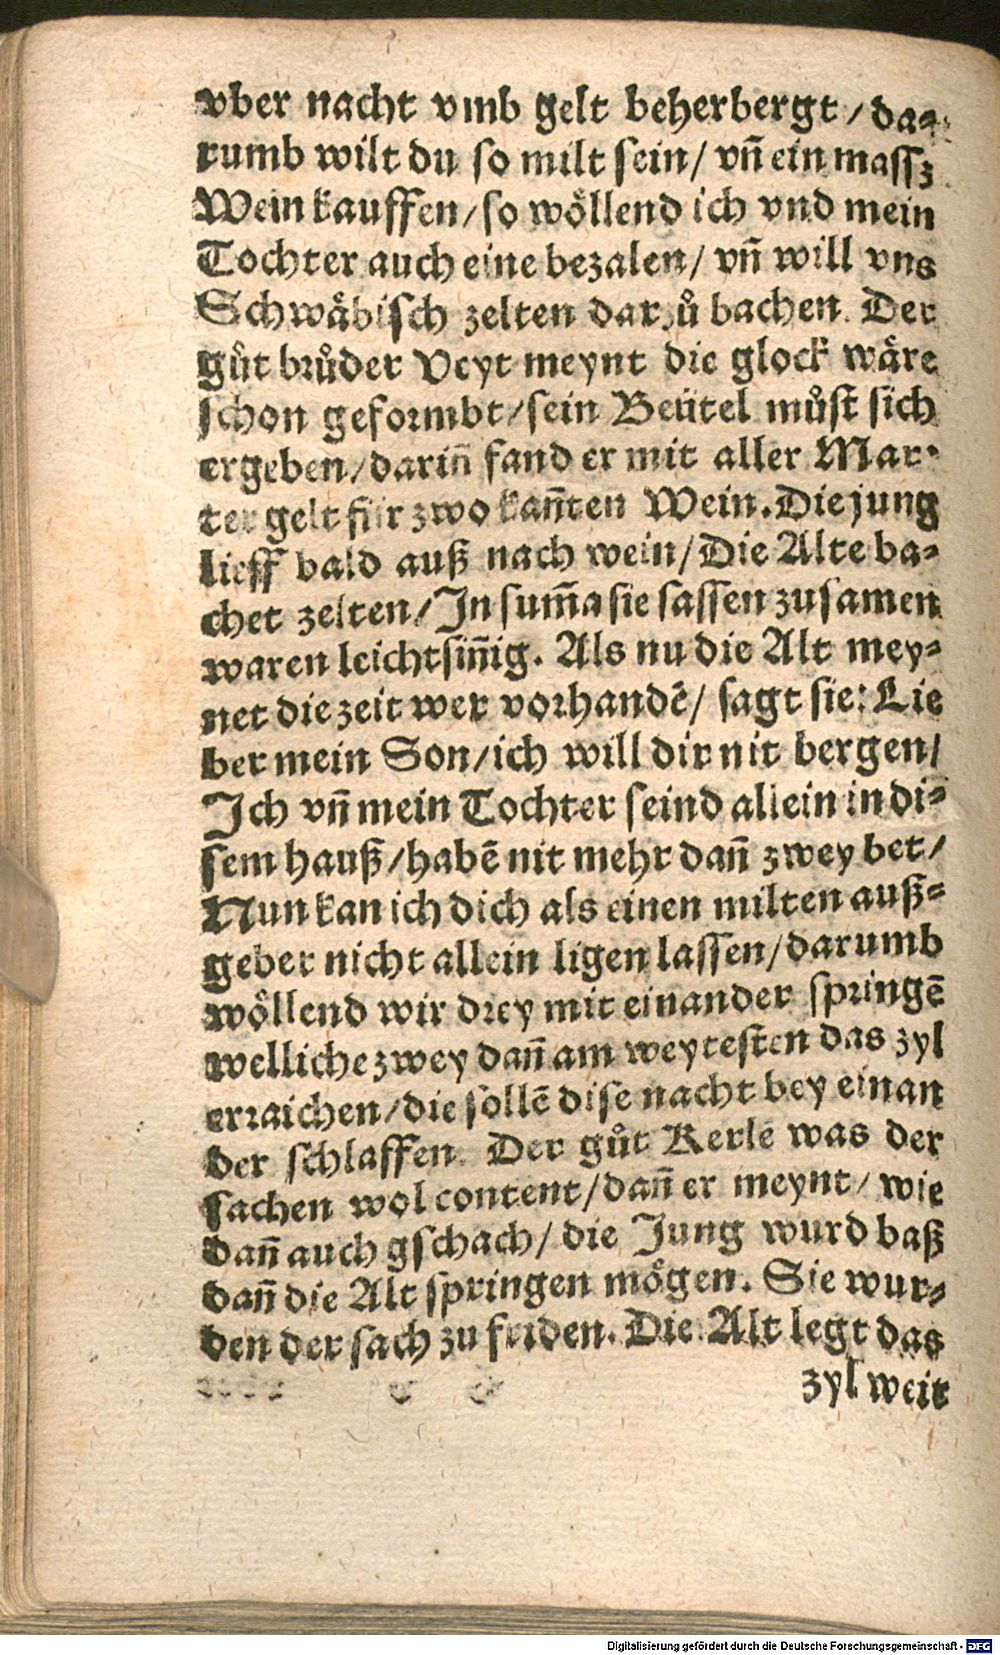 vber nacht vmb gelt beherbergt / da⸗
rumb wilt du so milt sein / vñ ein massz
Wein kauffen / so woͤllend ich vnd mein
Tochter auch eine bezalen / vñ will vns
Schwaͤbisch zelten darzuͦ bachen. Der
guͦt bruͦder Veyt meynt die glock waͤre
schon geformbt / sein Beütel muͦst sich
ergeben / dariñ fand er mit aller Mar⸗
ter gelt für zwo kañten Wein. Die jung
lieff bald auß nach wein / Die Alte ba⸗
chet zelten / In sum̃a sie sassen zusamen
waren leichtsiñig. Als nu die Alt mey⸗
net die zeit wer vorhandẽ / sagt sie: Lie
ber mein Son / ich will dir nit bergen /
Ich vñ mein Tochter seind allein in di⸗
sem hauß / habẽ nit mehr dañ zwey bet /
Nun kan ich dich als einen milten auß⸗
geber nicht allein ligen lassen / darumb
woͤllend wir drey mit einander springẽ
welliche zwey dañ am weytesten das zyl
erraichen / die sollẽ dise nacht bey einan
der schlaffen. Der guͦt Kerle was der
sachen wol content / dañ er meynt / wie
dañ auch gschach / die Jung wurd baß
dañ die Alt springen moͤgen. Sie wur⸗
den der sach zu friden. Die Alt legt das
zyl weit
Digitalisierung gefördert durch die Deutsche Forschungsgemeinschaft - DFG